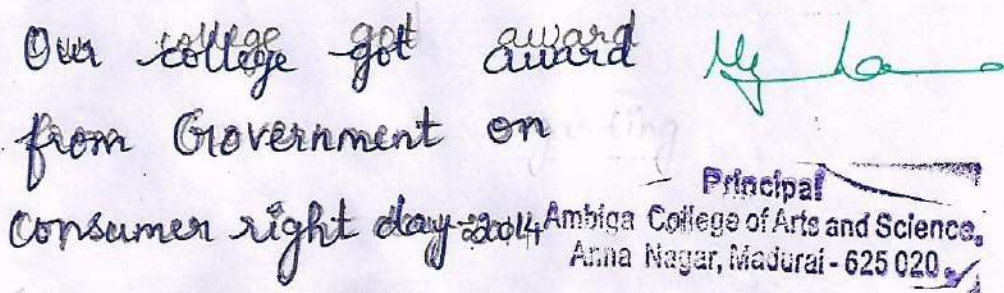 Our college got award
from Government on
Consumer right day-2014
Principal
Ambiga College of Arts and Science,
Anna Nagar, Madurai - 625 020.